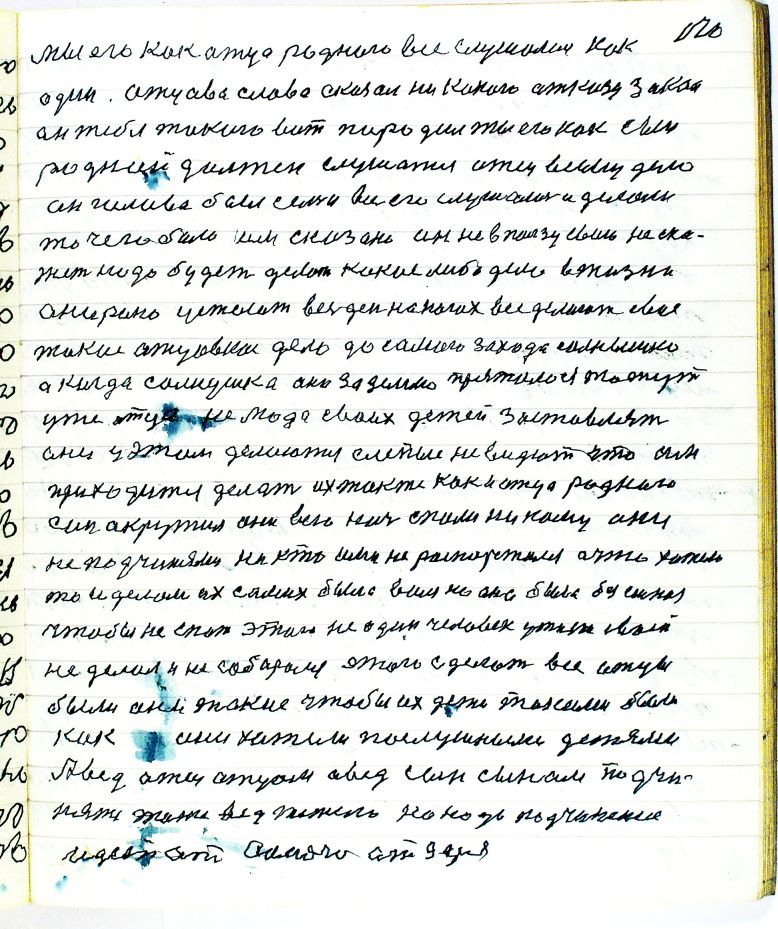 мы его как атца роднога все слушались как
один. атцава слова сказал никакого атказу закон
он тебя такого вот породил ты его как сын
родней должен слушатся атец всему дело
он голова был семьи все его слушались и делали
то чего было им сказано он не в ползу свою не ска-
жет надо будет делат какое либо дело в жизни
они рано устают вес ден на ногах все делают свое
такие атцовское дело до самого захода солнышко
а когда солнушка
уже не мода своих детей заставлят
они у этом делаются слепые не видют что им
приходится делат их также как и атца роднога
сон они всю ноч спали никому они
не подчинялис никто ими не распоряжался а что хотели
то и делали их самих была воля но она была бу сонная
чтобы не спат этого не один человек
не делал и не собирался этого сделат все атцы
были они такие чтобы их дети такими были
как они хатели послушными детями
Авед атец атцом авед сын сынам подчи-
няти тоже вед тяжело но надо подчинение
идет от самого от царя